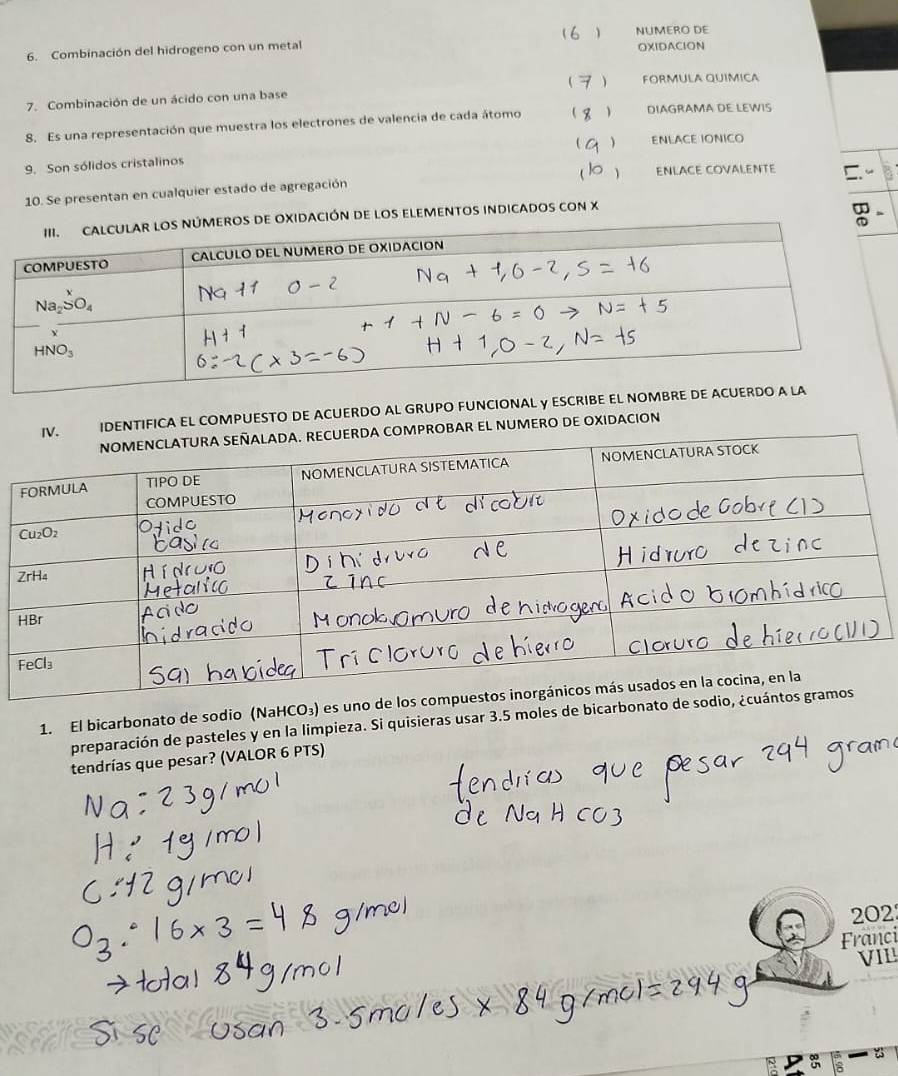 6. Combinación del hidrogeno con un metal
(6) NUMERO DE OXIDACION
7. Combinación de un ácido con una base
(7) FORMULA QUIMICA
8. Es una representación que muestra los electrones de valencia de cada átomo
(8) DIAGRAMA DE LEWIS
9. Son sólidos cristalinos
(9) ENLACE IONICO
10. Se presentan en cualquier estado de agregación
(10) ENLACE COVALENTE
III. CALCULAR LOS NÚMEROS DE OXIDACIÓN DE LOS ELEMENTOS INDICADOS CON X
COMPUESTO CALCULO DEL NUMERO DE OXIDACION
x
Na₂SO₄ Na +1 O -2 Na + 1, O - 2, S = +6
x
HNO₃ H + 1 + 1 + N - 6 = 0 → N = + 5
O: -2 (x 3 = -6) H + 1, O - 2, N = +5
IV. IDENTIFICA EL COMPUESTO DE ACUERDO AL GRUPO FUNCIONAL y ESCRIBE EL NOMBRE DE ACUERDO A LA
NOMENCLATURA SEÑALADA. RECUERDA COMPROBAR EL NUMERO DE OXIDACION
FORMULA TIPO DE COMPUESTO NOMENCLATURA SISTEMATICA NOMENCLATURA STOCK
Cu₂O₂ Oxido basico Monoxido de dicobre Oxido de Cobre (1)
ZrH₄ Hidruro Metalico Dinidruro de zinc Hidruro de zinc
HBr Acido hidracido Monobromuro de hidrogeno Acido bromhidrico
FeCl₃ Sal haloidea Tricloruro de hierro cloruro de hierro (III)
1. El bicarbonato de sodio (NaHCO₃) es uno de los compuestos inorgánicos más usados en la cocina, en la
preparación de pasteles y en la limpieza. Si quisieras usar 3.5 moles de bicarbonato de sodio, ¿cuántos gramos
tendrías que pesar? (VALOR 6 PTS)
Na: 23 g/mol
tendrias que pesar 294 gramo
de NaHCO3
H: 1g/mol
C: 12 g/mol
O3: 16 x 3 = 48 g/mol
→ total 84 g/mol
Si se usan 3.5 moles x 84 g/mol = 294 g
202
Franci
VILL
3
Li
4
Be
85
At
53
I